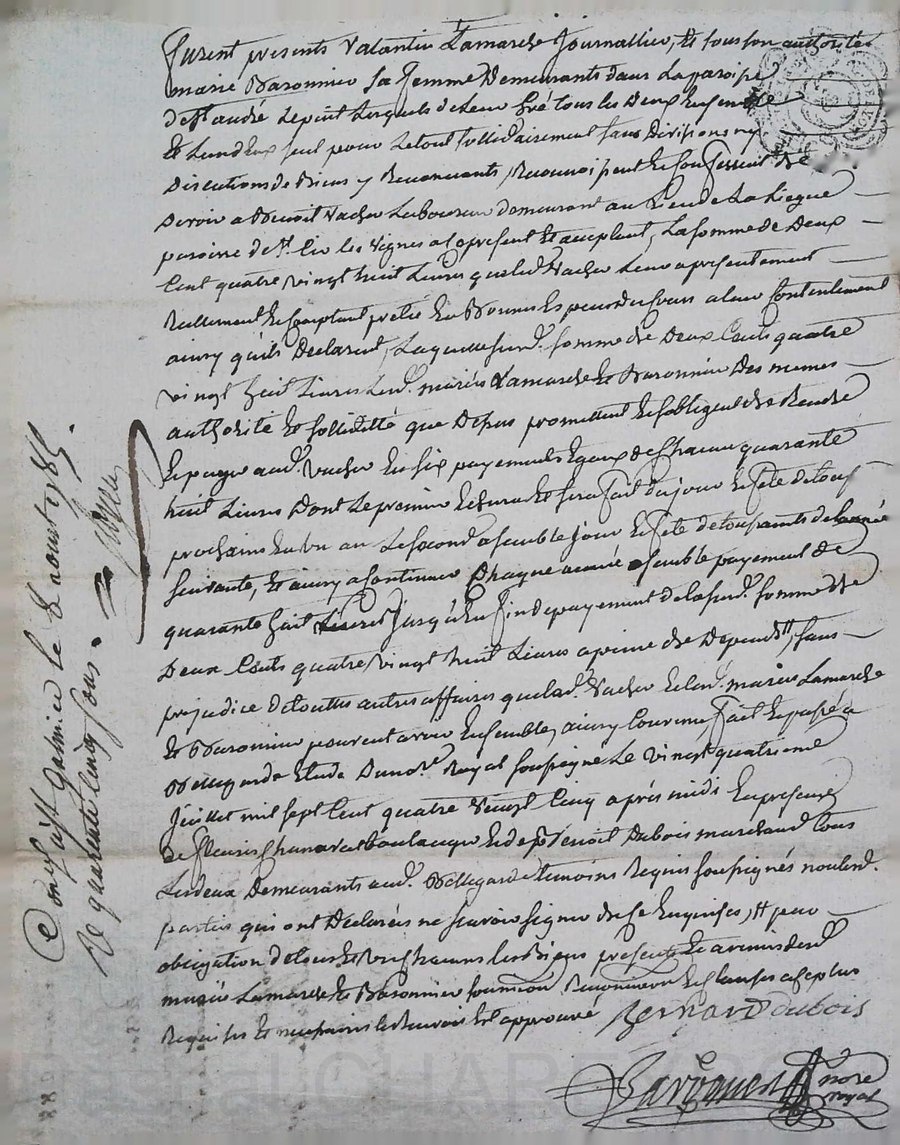 furent presents Valantin Lamarche Journallier, Et sous son authorité
marie Baronnier sa femme Demeurants dans La paroisse
de St andré Lepuit Lesquels de Leur Gré tous les Deux Ensemble
Et L'un d'Eux seul pour Le tout sollidairement sans Divisions ny
Discutions de Biens y Renonceants, Reconnoissent Et Confessent
Devoir a Benoit Vacher Laboureur demeurant au Lieu de La
paroisse de St Cir les Vignes a Ce present Et acceptant, La somme de Deux
Cent quatre vingt huit Livres que led. Vacher Leur a presentement
Reellement Et Comptant pretée En Bonnes Especes du Cours a leur Contentement
ainsy qu'ils Declarent, Laquelle susd. somme de Deux Cents quatre
vingt huit Livres Lesd. mariés Lamarche Et Baronnier Des memes
authorité Et sollidité que Dessus promettent Et s'obligent de Rendre
Et payer aud. Vacher En six payements Egaux de Chacun quarante
huit Livres Dont Le premier Echera Et sera fait du jour Et fete de tous
prochains En un an Le second a semblable jour Et fete de toussaints de L'année
suivante, Et ainsy a Continuer Chaque année a semblable payement de
quarante huit Livres Jusqu'a En fin de payement de la susd. somme de
Deux Cents quatre vingt huit Livres a peine de Depends, sans
prejudice de touttes autres affaires que led. Vacher Et Lesd. mariés Lamarche
Et Baronnier peuvent avoir Ensemble, ainsy Convenu, fait Et passé a
Bellegarde Etude Du no.re Royal soussigné Le vingt quatrieme
Juillet mil sept Cent quatre Vingt Cinq après midi En presence
de fleuris Chanavat Boulanger Et de Benoit Dubois marchand tous
Les deux Demeurants aud. Bellegarde temoins Requis soussignés non lesd.
parties qui ont Declarés ne scavoir signer de Ce Enquises,
obligation de tous Et Un Chacuns les Biens presents Et avenir desd.
mariés Lamarche Et Baronnier soumission Renonciation Et Clauses
Requises Et necessaires approuvé Bernard dubois
no.re
royal
Con.lé a St Galmier le 8 aoust 1785.
R quarante Cinq sous.